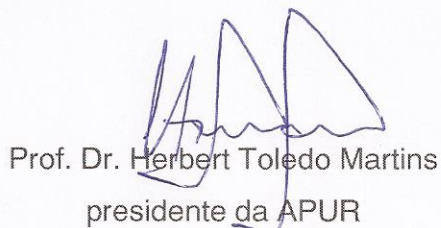 Prof. Dr. Herbert Toledo Martins
presidente da APUR